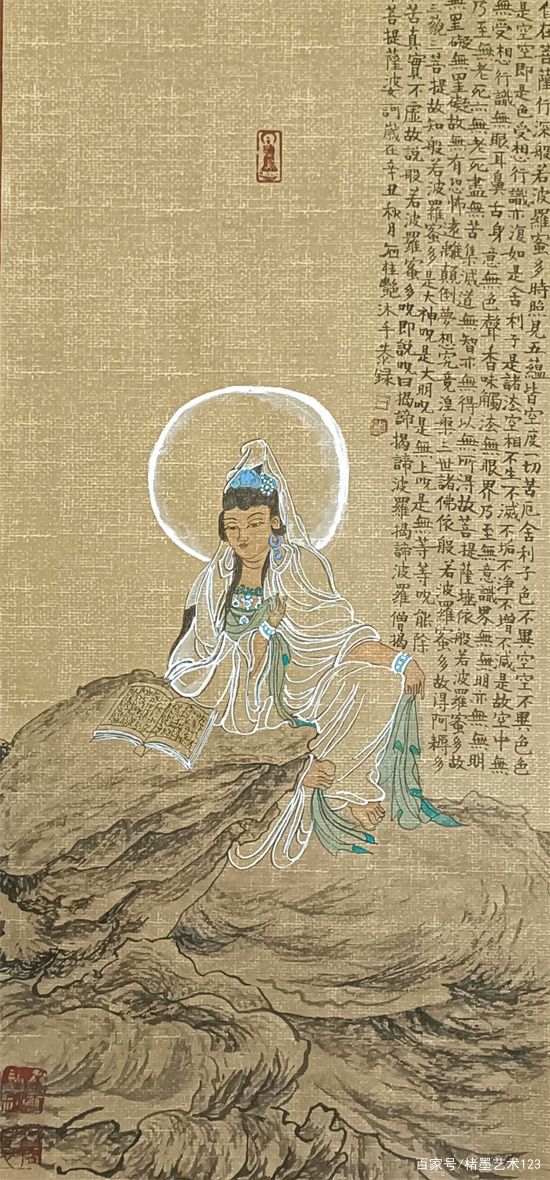 在菩薩行深般若波羅蜜多時照見五蘊皆空度一切苦厄舍利子色不異空空不異色色
是空空即是色受想行識亦復如是舍利子是諸法空相不生不滅不垢不淨不增不減是故空中無
無受想行識無眼耳鼻舌身意無色聲香味觸法無眼界乃至無意識界無無明亦無無明
乃至無老死亦無老死盡無苦集滅道無智亦無得以無所得故菩提薩埵依般若波羅蜜多故
無罣礙無罣礙故無有恐怖遠離顛倒夢想究竟涅槃三世諸佛依般若波羅蜜多故得阿耨多
三藐三菩提故知般若波羅蜜多是大神呪是大明呪是無上呪是無等等呪能除
苦真實不虛故說般若波羅蜜多呪即說呪曰揭諦揭諦波羅揭諦波羅僧揭
菩提薩婆訶歲在辛丑秋月石柱艷沐手恭録
百家号/楮墨艺术123